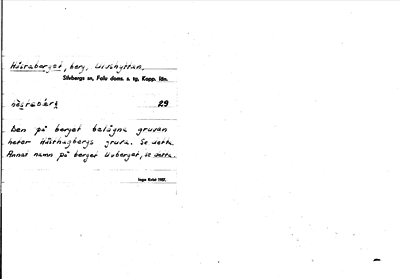 Hästaberget, berg, Ulvshyttan,
Silvbergs sn, Falu doms. s. tg, Kopp. län.
hèstabærk 29
Den på berget belägna gruvan
heter Hästhagbergs gruva. Se detta.
Annat namn på berget Uvberget, se detta.
Inga Kvist 1937.